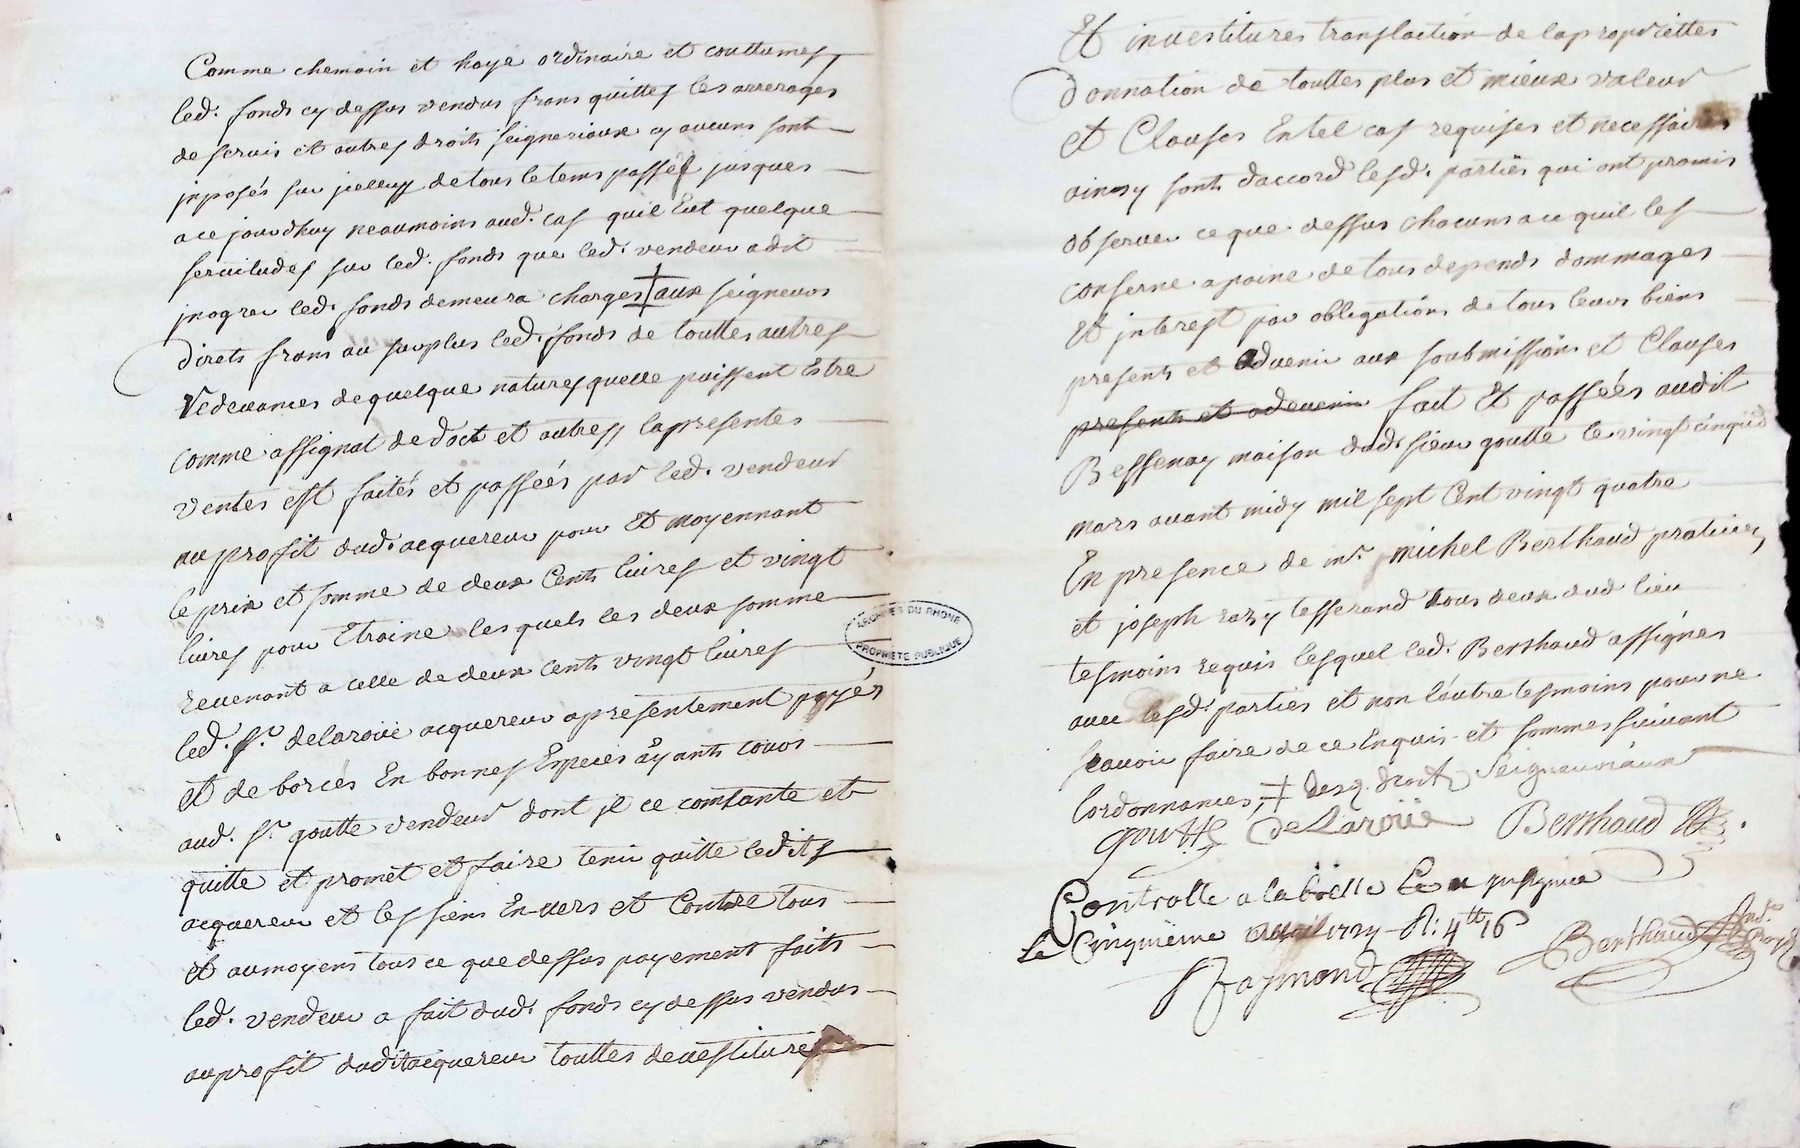 Comme chemain et haye ordinaire et couttumes
led. fonds cy dessus vendus frans quittes les arrerages
de servis et autres droits seigneriaux cy aucuns sont
jnposés sur jcelluy de tous le tems passé jusques
a ce jourdhuy neaumoins aud. cas quil Eut quelque
servitudes sur led. fonds que led. vendeur a dit
jnogrer led. fonds demeura charges ‡ aux seigneurs
direts frans au surplus led. fonds de touttes autres
Redevances de quelque natures quelle puissent Estre
comme assignat de doct et autres la presentes
ventes est faités et passéés par led. vendeur
au profit dud. acquereur pour Et moyennant
le prix et somme de deux Cents livres et vingt
livres pour Etraine les quels les deux somme
revenant a celle de deux cents vingt livres
led. Sr. delaroüe acquereur a presentement payés
et de borcés En bonnes Especes ayants cours
aud. Sr. goutte vendeur dont jl ce contante et
quitte et promet et faire tenir quitte ledits
acquereur et les siens Envers et Contre tous
Et aumoyens tous ce que dessus payement faits
led. vendeur a fait dud. fonds cy dessus vendus
au profit dudit acquereur touttes devestitures
ARCHIVES DU RHONE
PROPRIETE PUBLIQUE
Et investitures translaction de la propriettes
donnation de touttes plus et mieux valeur
et Clauses En tel cas requises et necessaires
ainsy sonts daccord lesd. partiës qui ont promis
observer ce que dessus chacuns a ce quil les
conserne a paine de tous depends dommages
Et jnterest par obligations de tous leurs biens
presents et advenir aux soubmissions et Clauses
presents et adevenir fait Et passéés audit
Bessenay maison dud. sieur goutte le vingt cinq
mars avant midy mil sept Cent vingt quatre
En presence de mr. michel Berthaud praticien
et joseph tesserand tous deux dud lieu
tesmoins requis lesquel led. Berthaud assignés
avec lesd. parties et non lautre tesmoins pour ne
scavoir faire de ce Enquis et sommes suivant
lordonnances, ‡ desd. droits Seigneuriaux
goutte DeLaroüe Berthaud
Controlle a la
Le Cinquieme avril 1724 R: 4tt 16s
Raymond Berthaud